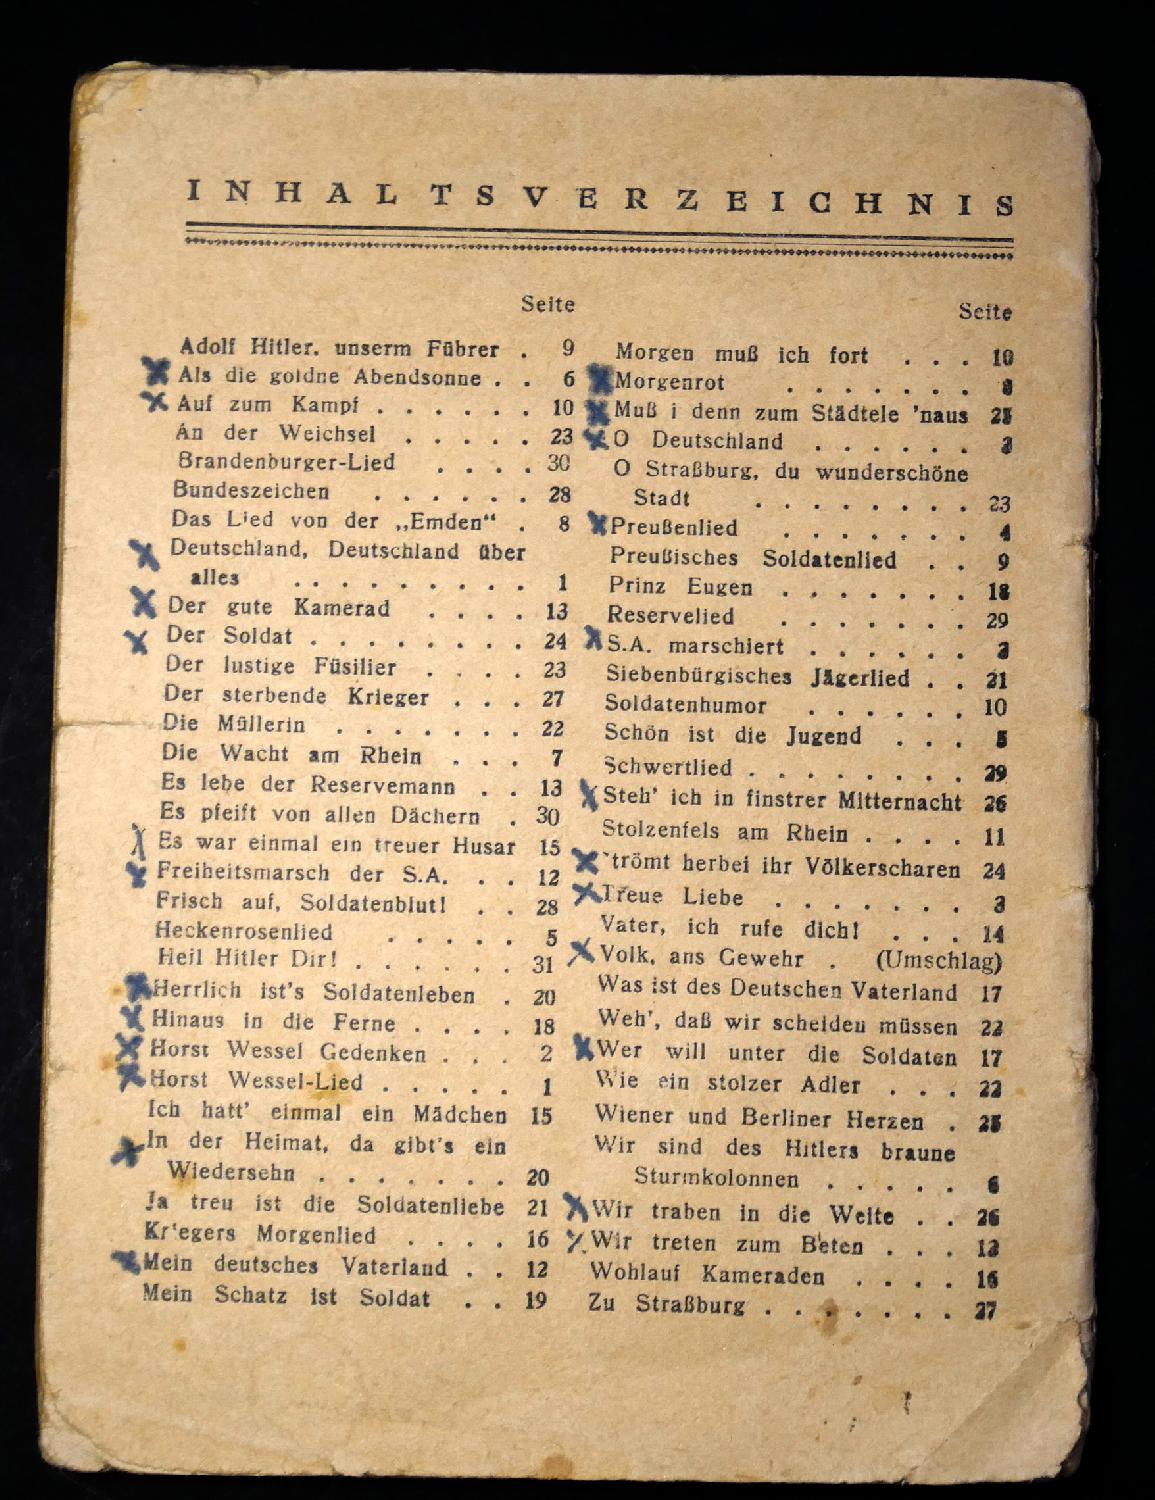 INHALTSVERZEICHNIS
Seite
Adolf Hitler. unserm Führer . 9
Als die goldne Abendsonne . . 6
Auf zum Kampf . . . . . . 10
An der Weichsel . . . . . 23
Brandenburger-Lied . . . . 30
Bundeszeichen . . . . . . 28
Das Lied von der „Emden“ . 8
Deutschland, Deutschland über
alles . . . . . . . . . 1
Der gute Kamerad . . . . 13
Der Soldat . . . . . . . . 24
Der lustige Füsilier . . . . 23
Der sterbende Krieger . . . 27
Die Müllerin . . . . . . . 22
Die Wacht am Rhein . . . 7
Es lebe der Reservemann . . 13
Es pfeift von allen Dächern . 30
Es war einmal ein treuer Husar 15
Freiheitsmarsch der S.A. . . 12
Frisch auf, Soldatenblut! . . 28
Heckenrosenlied . . . . . 5
Heil Hitler Dir! . . . . . . 31
Herrlich ist's Soldatenleben . 20
Hinaus in die Ferne . . . . 18
Horst Wessel Gedenken . . . 2
Horst Wessel-Lied . . . . . 1
Ich hatt' einmal ein Mädchen 15
In der Heimat, da gibt's ein
Wiedersehn . . . . . . . 20
Ja treu ist die Soldatenliebe 21
Kriegers Morgenlied . . . . 16
Mein deutsches Vaterland . . 12
Mein Schatz ist Soldat . . 19
Seite
Morgen muß ich fort . . . 10
Morgenrot . . . . . . .
Muß i denn zum Städtele 'naus
O Deutschland . . . . . .
O Straßburg, du wunderschöne
Stadt . . . . . . . . 23
Preußenlied . . . . . . . 4
Preußisches Soldatenlied . . 9
Prinz Eugen . . . . . . . 18
Reservelied . . . . . . . 29
S.A. marschiert . . . . . .
Siebenbürgisches Jägerlied . . 21
Soldatenhumor . . . . . . 10
Schön ist die Jugend . . . 5
Schwertlied . . . . . . . . 29
Steh' ich in finstrer Mitternacht 26
Stolzenfels am Rhein . . . . 11
'trömt herbei ihr Völkerscharen 24
Treue Liebe . . . . . . . 3
Vater, ich rufe dich! . . . 14
Volk, ans Gewehr . (Umschlag)
Was ist des Deutschen Vaterland 17
Weh', daß wir scheiden müssen 22
Wer will unter die Soldaten 17
Wie ein stolzer Adler . . . 22
Wiener und Berliner Herzen .
Wir sind des Hitlers braune
Sturmkolonnen . . . . . 6
Wir traben in die Weite . . 26
Wir treten zum Beten . . .
Wohlauf Kameraden . . . . 16
Zu Straßburg . . . . . . . 27